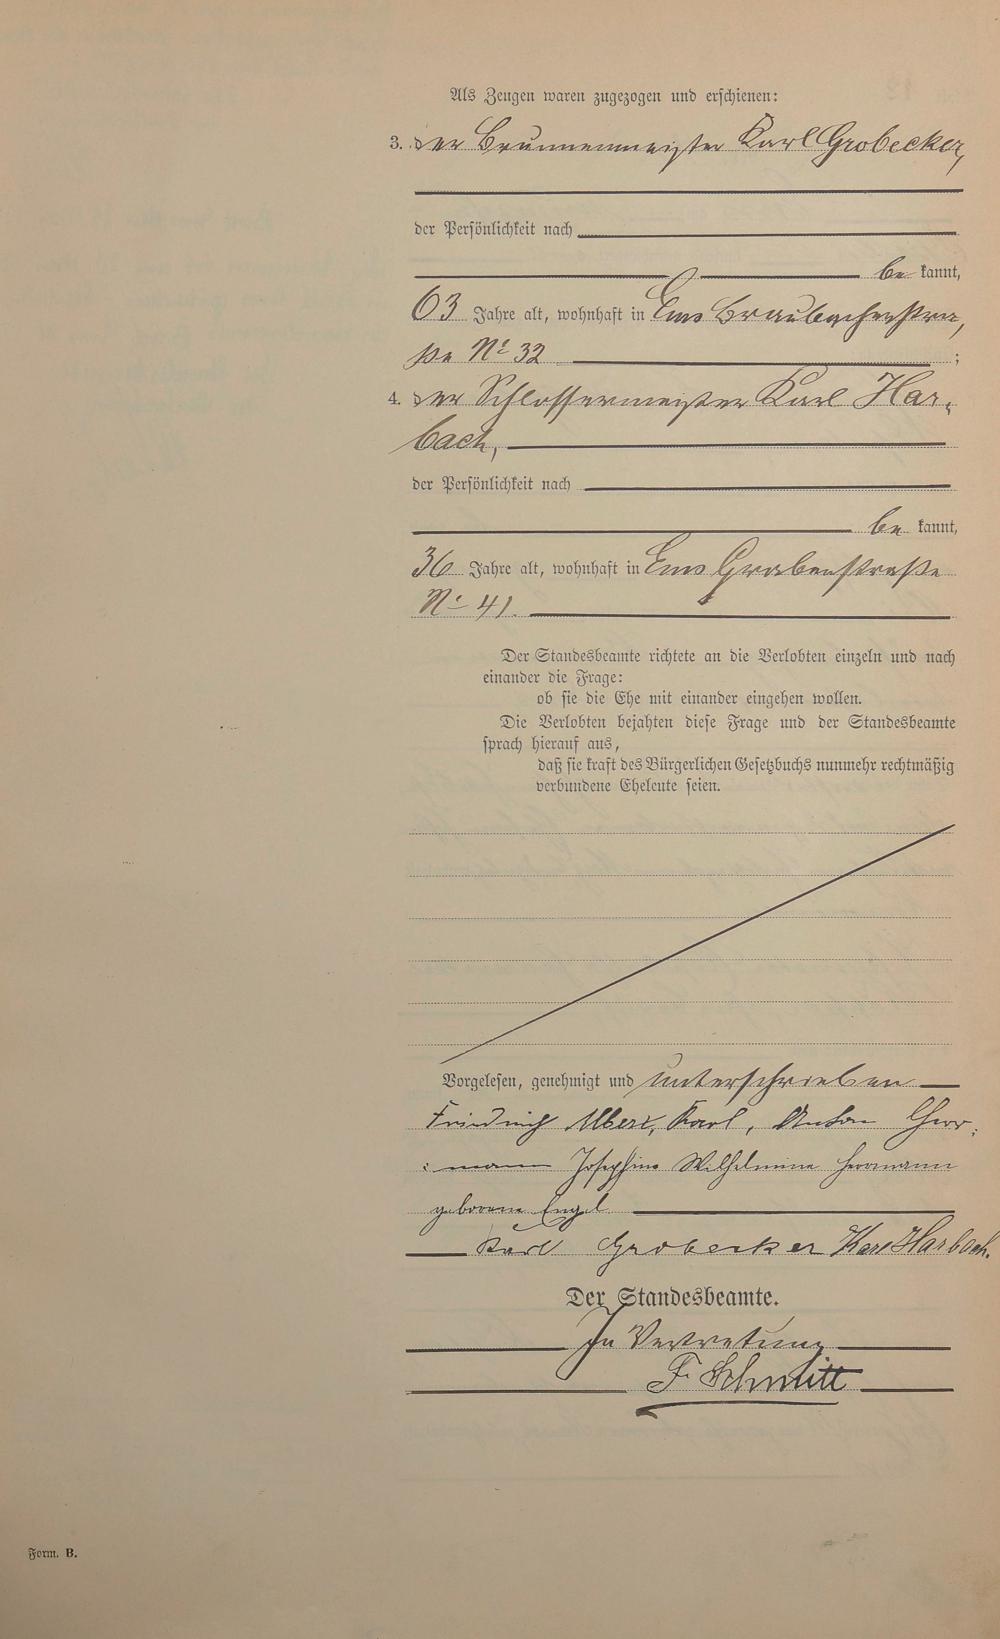 Als Zeugen waren zugezogen und erschienen:
3. der Brunnenmeister Karl Grobecker,
der Persönlichkeit nach
be kannt,
63 Jahre alt, wohnhaft in Ems Braubacherstra,
ße No 32 ;
4. der Schlossermeister Karl Har,
bach,
der Persönlichkeit nach
be kannt,
36 Jahre alt, wohnhaft in Ems Grabenstraße
No 41.
Der Standesbeamte richtete an die Verlobten einzeln und nach
einander die Frage:
ob sie die Ehe mit einander eingehen wollen.
Die Verlobten bejahten diese Frage und der Standesbeamte
sprach hierauf aus,
daß sie kraft des Bürgerlichen Gesetzbuchs nunmehr rechtmäßig
verbundene Eheleute seien.
Vorgelesen, genehmigt und unterschrieben
Friedrich Albert, Karl, Anton Herr:
: mann Josephine Wilhelmine Herrmann
geborene Engel
Karl Grobecker Karl Harbach.
Der Standesbeamte.
In Vertretung
F. Schmitt
Form. B.